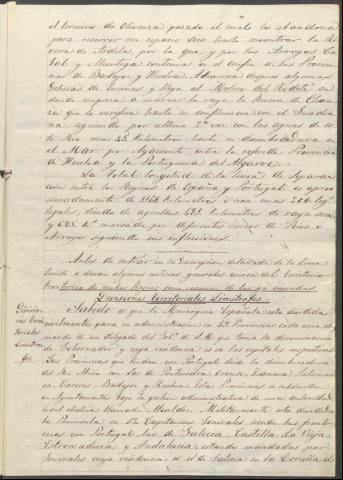 el termino de Olivenza pasado el cual lo abandona
para recorrer un espacio seco hasta encontrar la Ri
vera de Ardila, por la que y por los Arroyos Ca
bal y Murtiga continua en el confin de las Provin
cias de Badajoz y Huelva. Atraviesa despues algunas
Dehesas de encinas y llega al Molino del
donde empieza a marcar la raya la Rivera de Chan
za que lo verifica hasta su confluencia con el Guadia
na siguiendo por ultimo otra vez con las aguas de es
te Rio unos 43 kilometros hasta su desembocadura en
el Mar por Ayamonte entre la referida Provincia
de Huelva y la Portuguesa del Algarve.
La total longitud de la linea de separa
cion entre los Reynos de España y Portugal es aprox
imadamente de kilometros o sean unas leg.s
legales, siendo de aquellos kilometros de raya seca
y marcada por diferentes cursos de Rios o
Arroyos siguiendo sus inflexiones.
Antes de entrar en la descripcion detallada de la Linea
limite se daran algunas noticias generales acerca del territorio
fronterizo de ambos Reynos
Divisiones territoriales limitrofes
Divisio
nes terri
toriales
limitro
fes.
Sabido es que la Monarquia Española esta dividida
civilmente para su administracion en Provincias cada una al
mando de un delegado del Gob.no de S.M. que toma la denominacion
de Gobernador y cuya residencia es en las capitales respectivas.
Las Provincias que lindan con Portugal desde la desembocadura
del Rio Miño son las de Pontevedra Orense Zamora Salaman
ca Caceres Badajoz y Huelva. Estas Provincias se subdividen
en Ayuntamientos bajo la gestion administrativa de una autoridad
local electiva llamada Alcalde. Militarmente esta dividida
la Peninsula en Capitanias Generales siendo las fronteri
zas con Portugal las de Galicia, Castilla la Vieja
Estremadura y Andalucia estando mandadas por
Generales cuya residencia es el de Galicia en la Coruña el